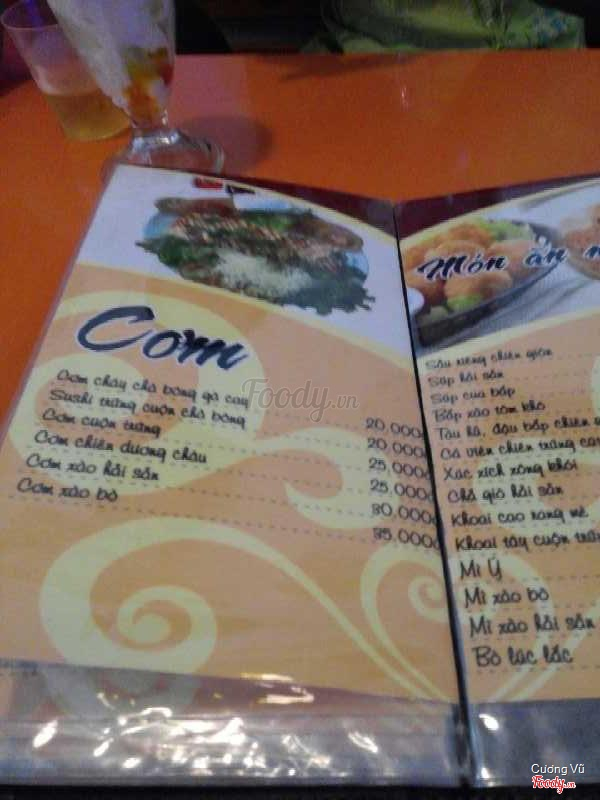 Cơm
Cơm cháy chà bông gà cay 20,000đ
Sushi trứng cuộn chà bông 20,000đ
Cơm cuộn trứng 25,000đ
Cơm chiên dương châu 25,000đ
Cơm xào hải sản 30,000đ
Cơm xào bò 35,000đ
Món ăn
Sầu riêng chiên giòn
Súp hải sản
Súp cua bắp
Bắp xào tôm khô
Tàu hủ, đậu bắp chiên
Cá viên chiên trứng
Xúc xích xông khói
Chả giò hải sản
Khoai cao nang mè
Khoai tây cuộn
Mì Ý
Mì xào bò
Mì xào hải sản
Bò lúc lắc
Foody.vn
Cương Vũ
Foody.vn